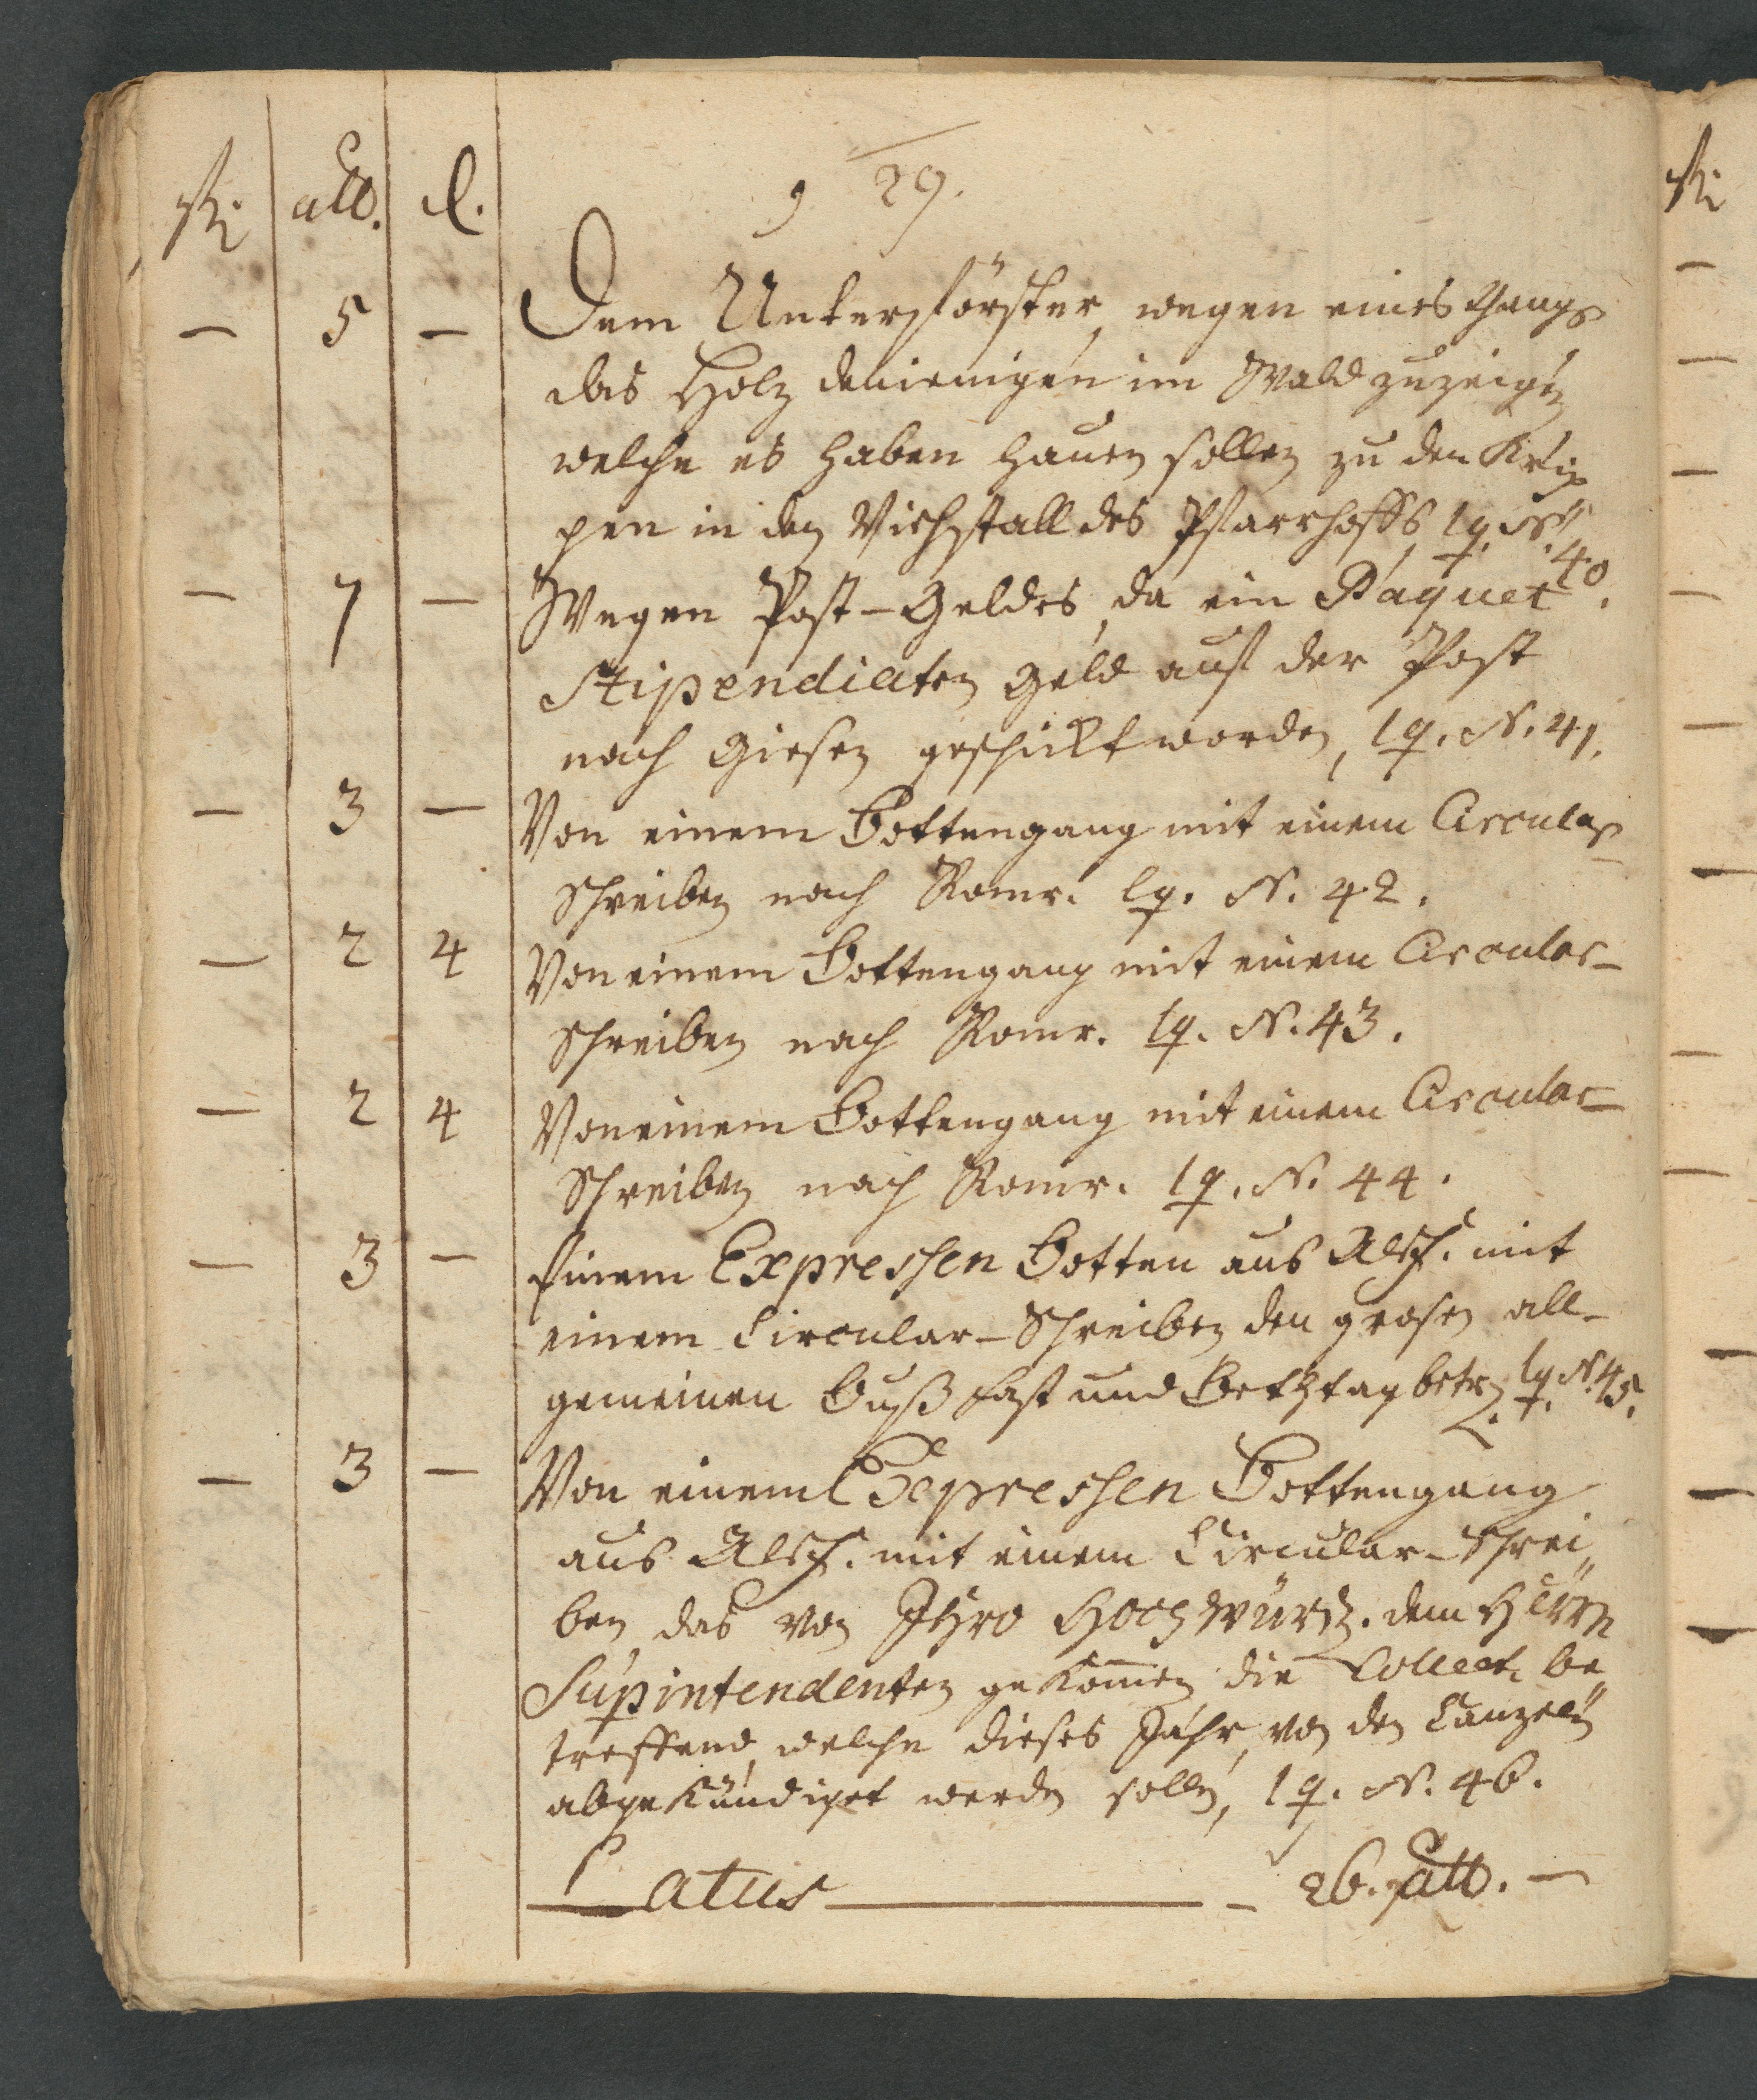 fl. alb. d.
29.
— 5 — Dem Unterförster, wegen eines Gangs
das Holz denienigen im Wald zuzeigen
welche es haben hauen sollen zu den Krip
pen in den Viehstall des Pfarrhoffs, lq. N. 40.
— 7 — Wegen Post-Geldes, da ein Paquet
Stipendiaten Geld auf der Post
nach Giesen geschickt worden, lq. N. 41.
— 3 — Von einem Bottengang mit einem Circular
Schreiben nach Romr. lq. N. 42.
— 2 4 Von einem Bottengang mit einem Circular-
Schreiben nach Romr. lq. N. 43.
— 2 4 Von einem Bottengang mit einem Circular-
Schreiben nach Romr. lq. N. 44.
— 3 — Einem Expressen Botten aus Alsf. mit
einem Circular-Schreiben den grosen all-
gemeinen Buß Fast und Bethtag betr. lq. N. 45.
— 3 — Von einem Expressen Bottengang
aus Alsf. mit einem Circular-Schrei
ben, das von Ihro Hochwürd. dem Herrn
Supintendenten gekommen die Collect. be
treffend, welche dieses Jahr, von den Canzeln
abgekündiget werden sollen, lq. N. 46.
Latus — 26. alb. —